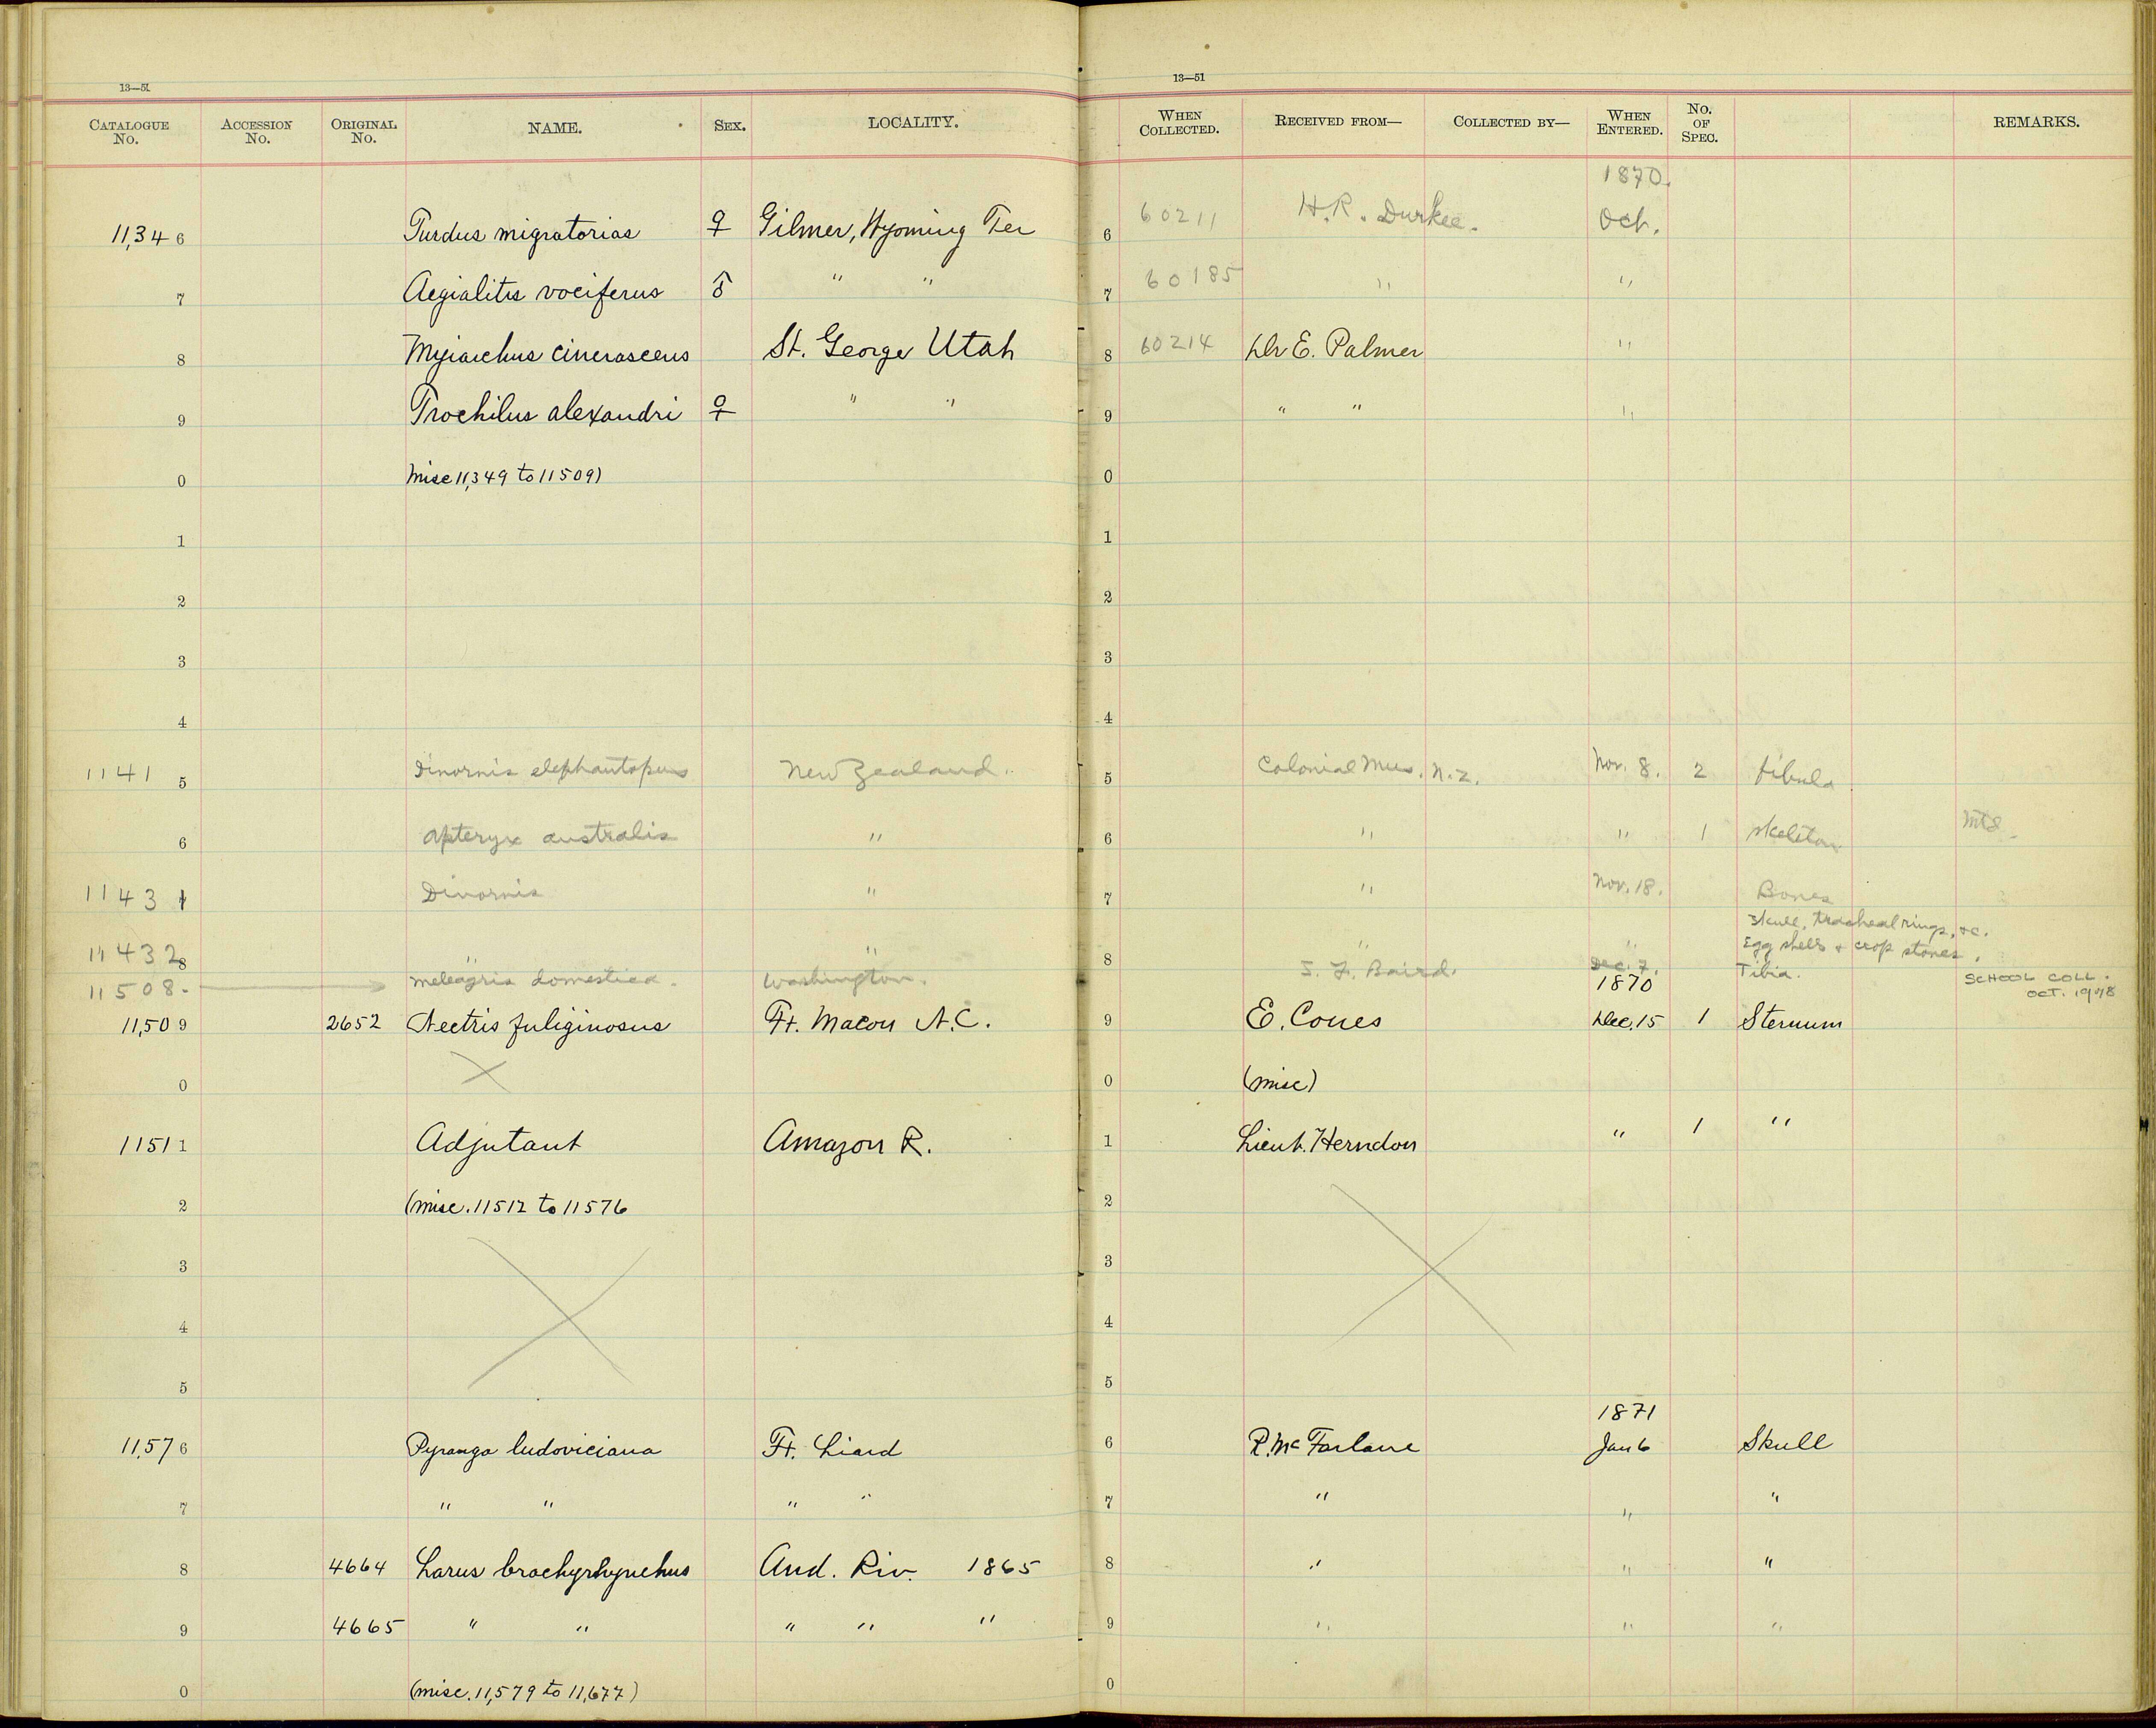 13—51
13—51
CATALOGUE No. ACCESSION No. ORIGINAL No. NAME. SEX. LOCALITY. WHEN COLLECTED. RECEIVED FROM— COLLECTED BY— WHEN ENTERED. No. OF SPEC. REMARKS.
1870.
11,346 Turdus migratorias ♀ Gilmer, Wyoming Ter 6 60211 H.R. Durkee. Oct.
7 Aegialitis vociferus ♂ " " 7 60185 " "
8 Myiarchus cinerascens St. George Utah 8 60214 Dr E. Palmer "
9 Trochilus alexandri ♀ " " 9 " " "
0 Misc 11,349 to 11509) 0
1 1
2 2
3 3
4 4
1141 5 Dinornis elephantopus New Zealand. 5 Colonial Mus. N.Z. Nov. 8. 2 fibula
6 Apteryx australis " 6 " " 1 skeleton Mtd.
1143 1 Dinornis " 7 " Nov. 18. Bones
Skull, tracheal rings, &c.
11432 8 " " 8 " " Egg shells & crop stones.
11508. meleagris domestica. Washington. S. F. Baird. Dec. 7. Tibia. SCHOOL COLL.
1870 OCT. 1978
11,509 2652 Nectris fuliginosus Ft. Macon N.C. 9 E. Coues Dec. 15 1 Sternum
0 0 (misc)
11511 Adjutant Amazon R. 1 Lieut. Herndon " 1 "
2 (misc. 11512 to 11576 2
3 3
4 4
5 5
1871
11,576 Pyranga ludoviciana Ft. Liard 6 R. McFarlane Jan 6 Skull
7 " " " " 7 " " "
8 4664 Larus brachyrhynchus And. Riv. 1865 8 " " "
9 4665 " " " " " 9 " " "
0 (misc. 11,579 to 11,677) 0